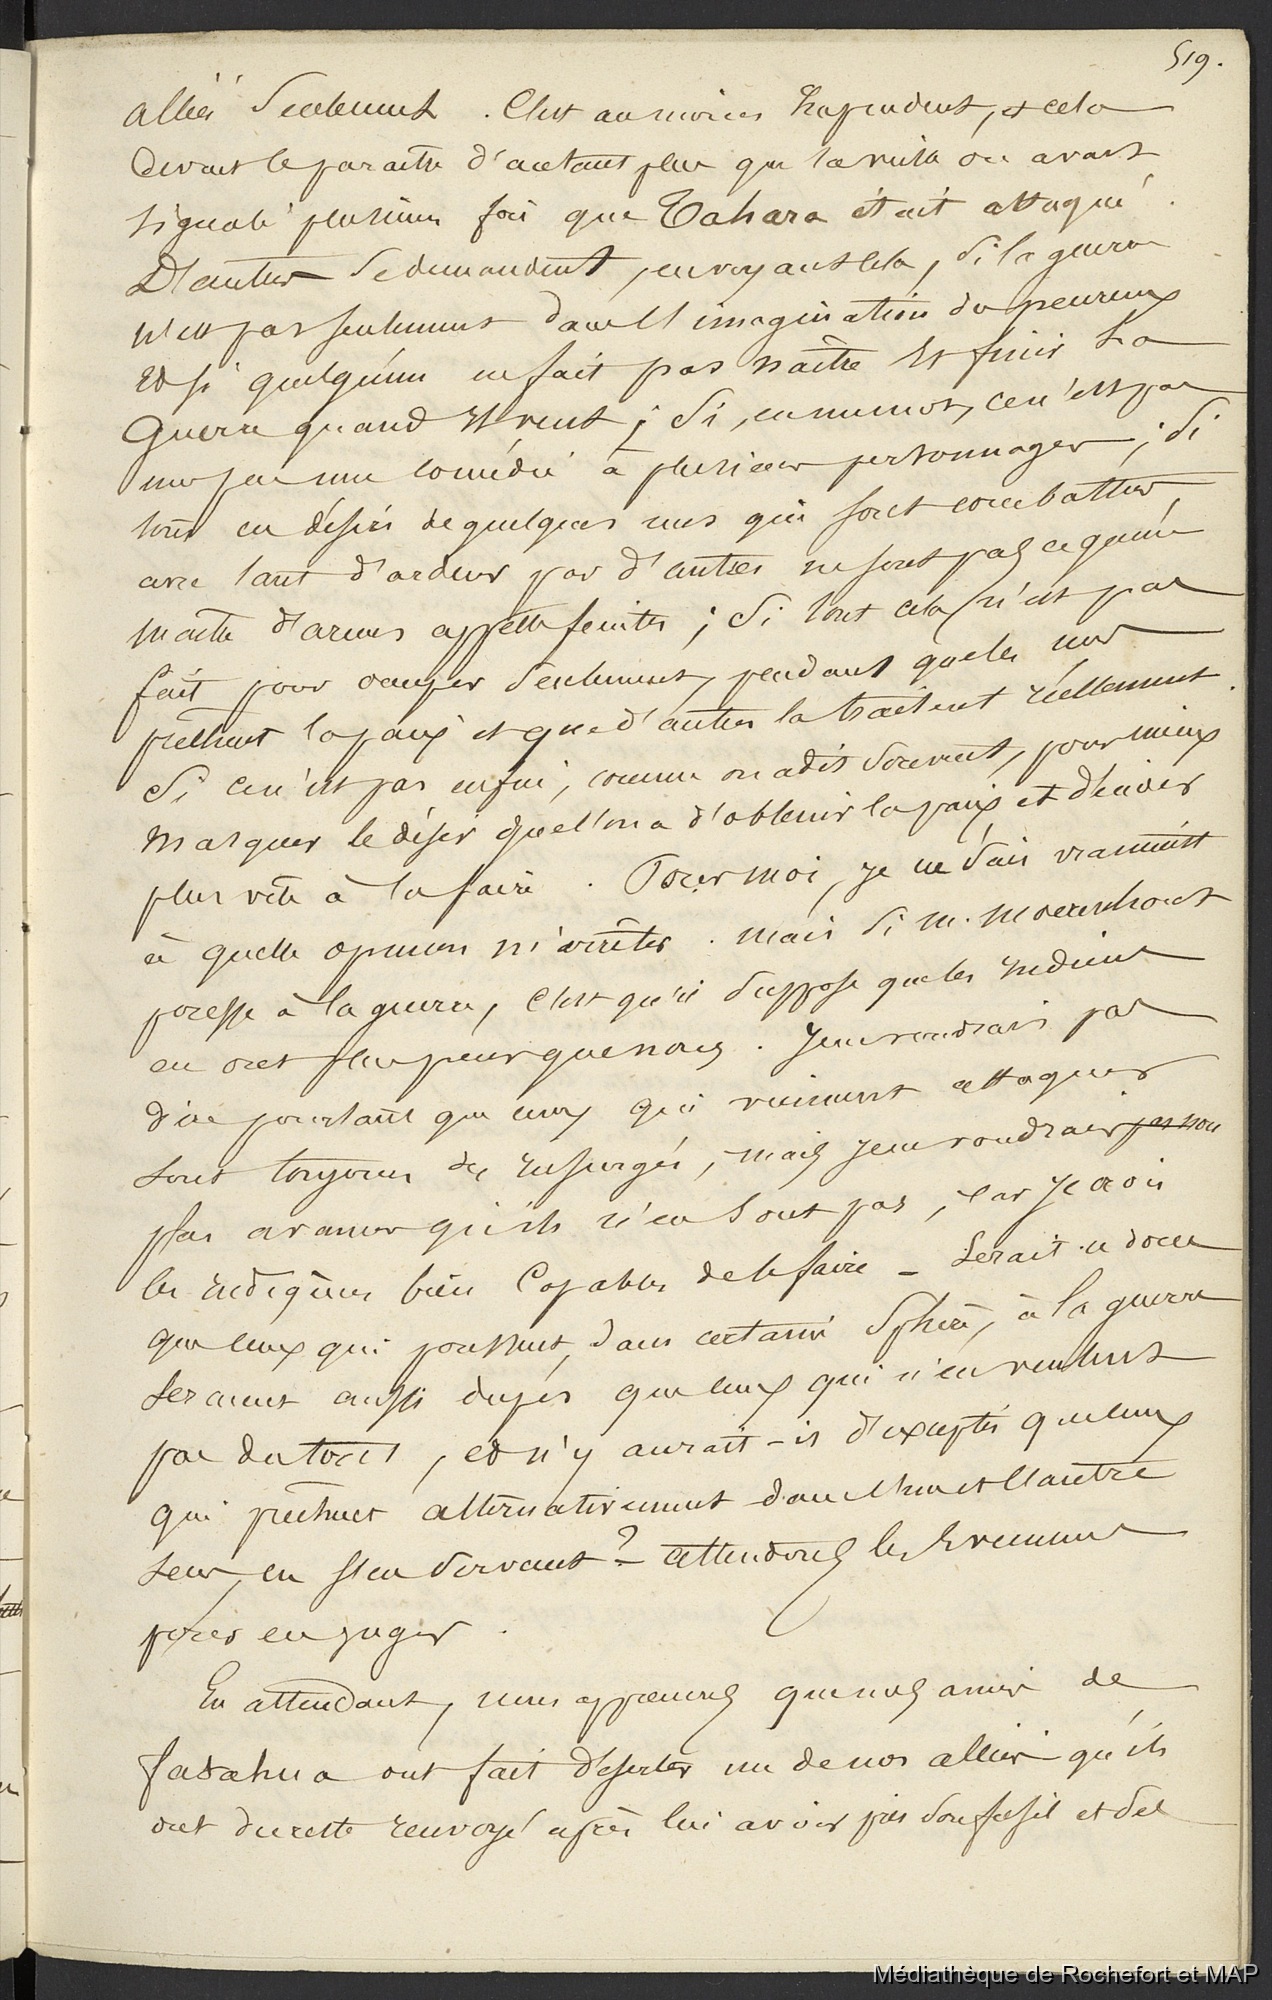 519.
alliés seulement. C'est au moins imprudent, et cela
devait le paraitre d'autant plus que la veille on avait
signalé plusieurs fois que Tahara était attaqué.
D'autres se demandent, en voyant cela, si la guerre
n'est pas seulement dans l'imagination du peureux
et si quelqu'un ne fait pas naitre et finir la
guerre quand il veut ; si, en un mot, ce n'est pas
un peu une comédie à plusieurs personnages ; si
tous ces désirs de quelques uns qui sont combattus,
avec tant d'ardeur par d'autres ne sont pas ce qu'un
maitre d'armes appelle feintes ; si tout cela n'est pas
fait pour occuper seulement, pendant que les uns
prêchent la paix et que d'autres la traitent réellement.
Si ce n'est pas enfin, comme on a dit souvent, pour mieux
masquer le désir que l'on a d'obtenir la paix et d'arriver
plus vite à la faire. Pour moi, je ne sais vraiment
à quelle opinion m'arrêter. Mais si M. Moerenhout
pousse à la guerre, c'est qu'il suppose que les Indiens
en ont plus peur que nous. Je ne voudrais pas
dire pourtant que ceux qui viennent attaquer
sont toujours des insurgés, mais je ne voudrais pas non
plus avancer qu'ils n'en sont pas, car je crois
les indigènes bien capables de le faire – Serait-ce donc
que ceux qui poussent, dans certaine sphère, à la guerre
seraient aussi dupés que ceux qui n'en veulent
pas du tout, et n'y aurait-il d'exceptés que ceux
qui prêchent alternativement dans l'un et l'autre
sens, en s'en servant ? – attendons les évènements
pour en juger.
En attendant, nous apprenons que nos amis de
Faaahua ont fait déserter un de nos alliés qu'ils
ont du reste renvoyé après lui avoir pris son fusil et ses